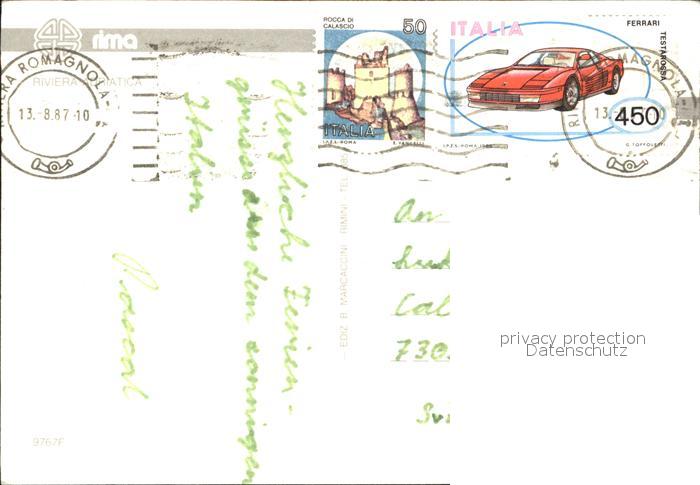 rima
RIVIERA ADRIATICA
RIVIERA ROMAGNOLA
13.-8.87-10
ROCCA DI
CALASCIO
50
ITALIA
I.P.Z.S.-ROMA
ITALIA
FERRARI
TESTAROSSA
450
I.P.Z.S.-ROMA
G. TOFFOLETTI
MAGNOLA
13.
Herzliche Ferien-
grüsse aus dem sonnigen
Italien
Pascal
EDIZ. B. MARCACCINI RIMINI TEL.
An
Cal
730
privacy protection
Datenschutz
9767F